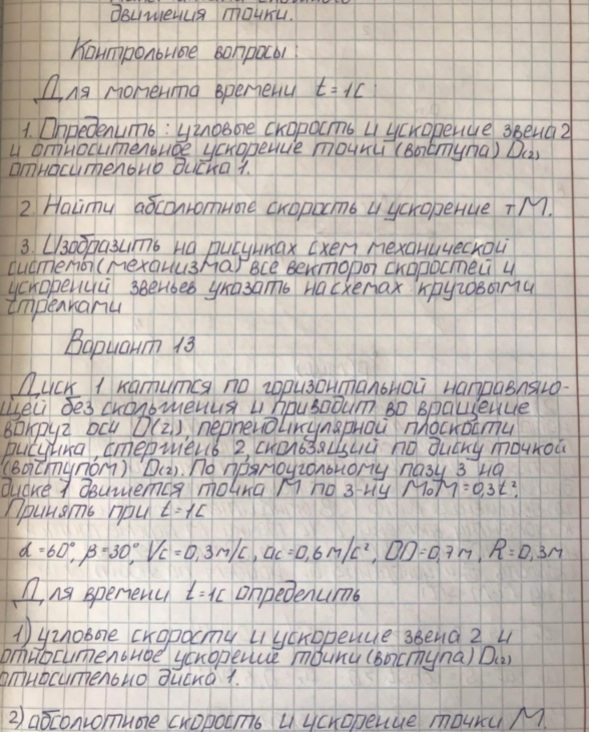 движения точки.
Контрольные вопросы:
Для момента времени t=1с
1. Определить: угловые скорость и ускорение звена 2
и относительное ускорение точки (выступа) D(2)
относительно диска 1.
2. Найти абсолютные скорость и ускорение т М.
3. Изобразить на рисунках схем механической
системы (механизма) все векторы скоростей и
ускорений звеньев указать на схемах круговыми
стрелками
Вариант 13
Диск 1 катится по горизонтальной направляю-
щей без скольжения и приводит во вращение
вокруг оси D(z), перпендикулярной плоскости
рисунка, стержень 2, скользящий по диску точкой
(выступом) D(2). По прямоугольному пазу 3 на
диске 1 движется точка М по з-ну M₀M=0,3t².
Принять при t=1с
α=60°, β=30°, Vc=0,3м/с, ac=0,6м/с², OD=0,7м, R=0,3м
Для времени t=1с определить
1) угловые скорости и ускорение звена 2 и
относительное ускорение точки (выступа) D(2)
относительно диска 1.
2) абсолютные скорость и ускорение точки М.